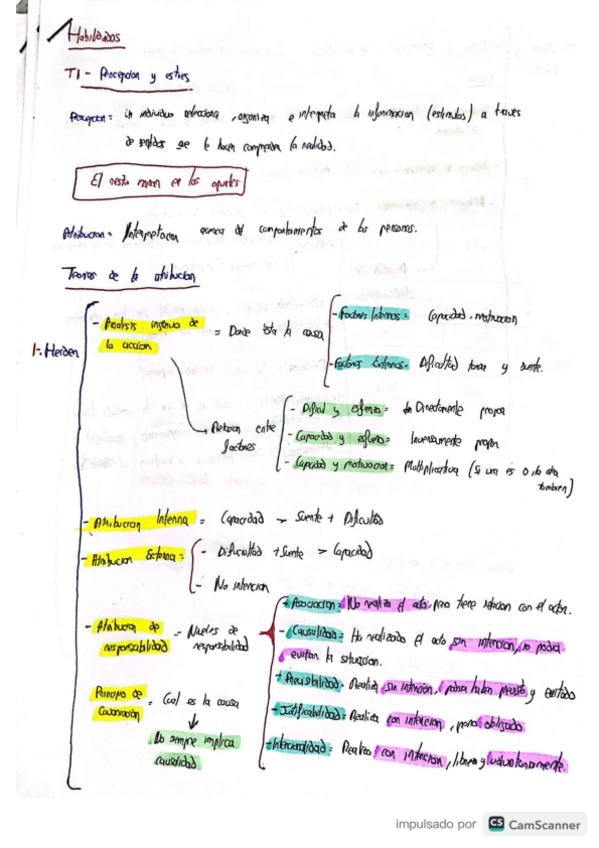 Habilidades
T1 - Percepcion y estres
Percepcion = un individuo selecciona, organiza e interpreta la informacion (estimulos) a traves
de sentidos que le hacen comprender la realidad.
El resto mirar en los apuntes
Atribucion = Interpretacion acerca del comportamientos de las personas.
Teorias de la atribucion
1. Heider
- Analisis ingenuo de la accion = Donde esta la causa
- Factores Internos = Capacidad, motivacion
- Factores Externos = Dificultad tarea y suerte.
Relacion entre factores
- Dificul y esfuerzo = Directamente propor
- Capacidad y esfuerzo = Inversamente propor
- Capacidad y motivacion = Multiplicativa (Si una es 0 la otra
tambien)
- Atribucion Interna = Capacidad > Suerte + Dificultad
- Atribucion Externa =
- Dificultad + Suerte > Capacidad
- No intencion
- Atribucion de responsabilidad = Niveles de responsabilidad
+ Asociacion = No realiza el acto, pero tiene relacion con el actor.
- Causalidad = Ha realizado el acto sin intencion, no podia
evitar la situacion.
+ Previsibilidad = Realiza sin intención, podia haber previsto y evitado
- Justificabilidad = Realiza con intencion, pero obligado
+ Intencionalidad = Realiza con intencion, libre y voluntariamente.
Principio de Covariación = Cual es la causa
No siempre implica
causalidad
impulsado por CS CamScanner